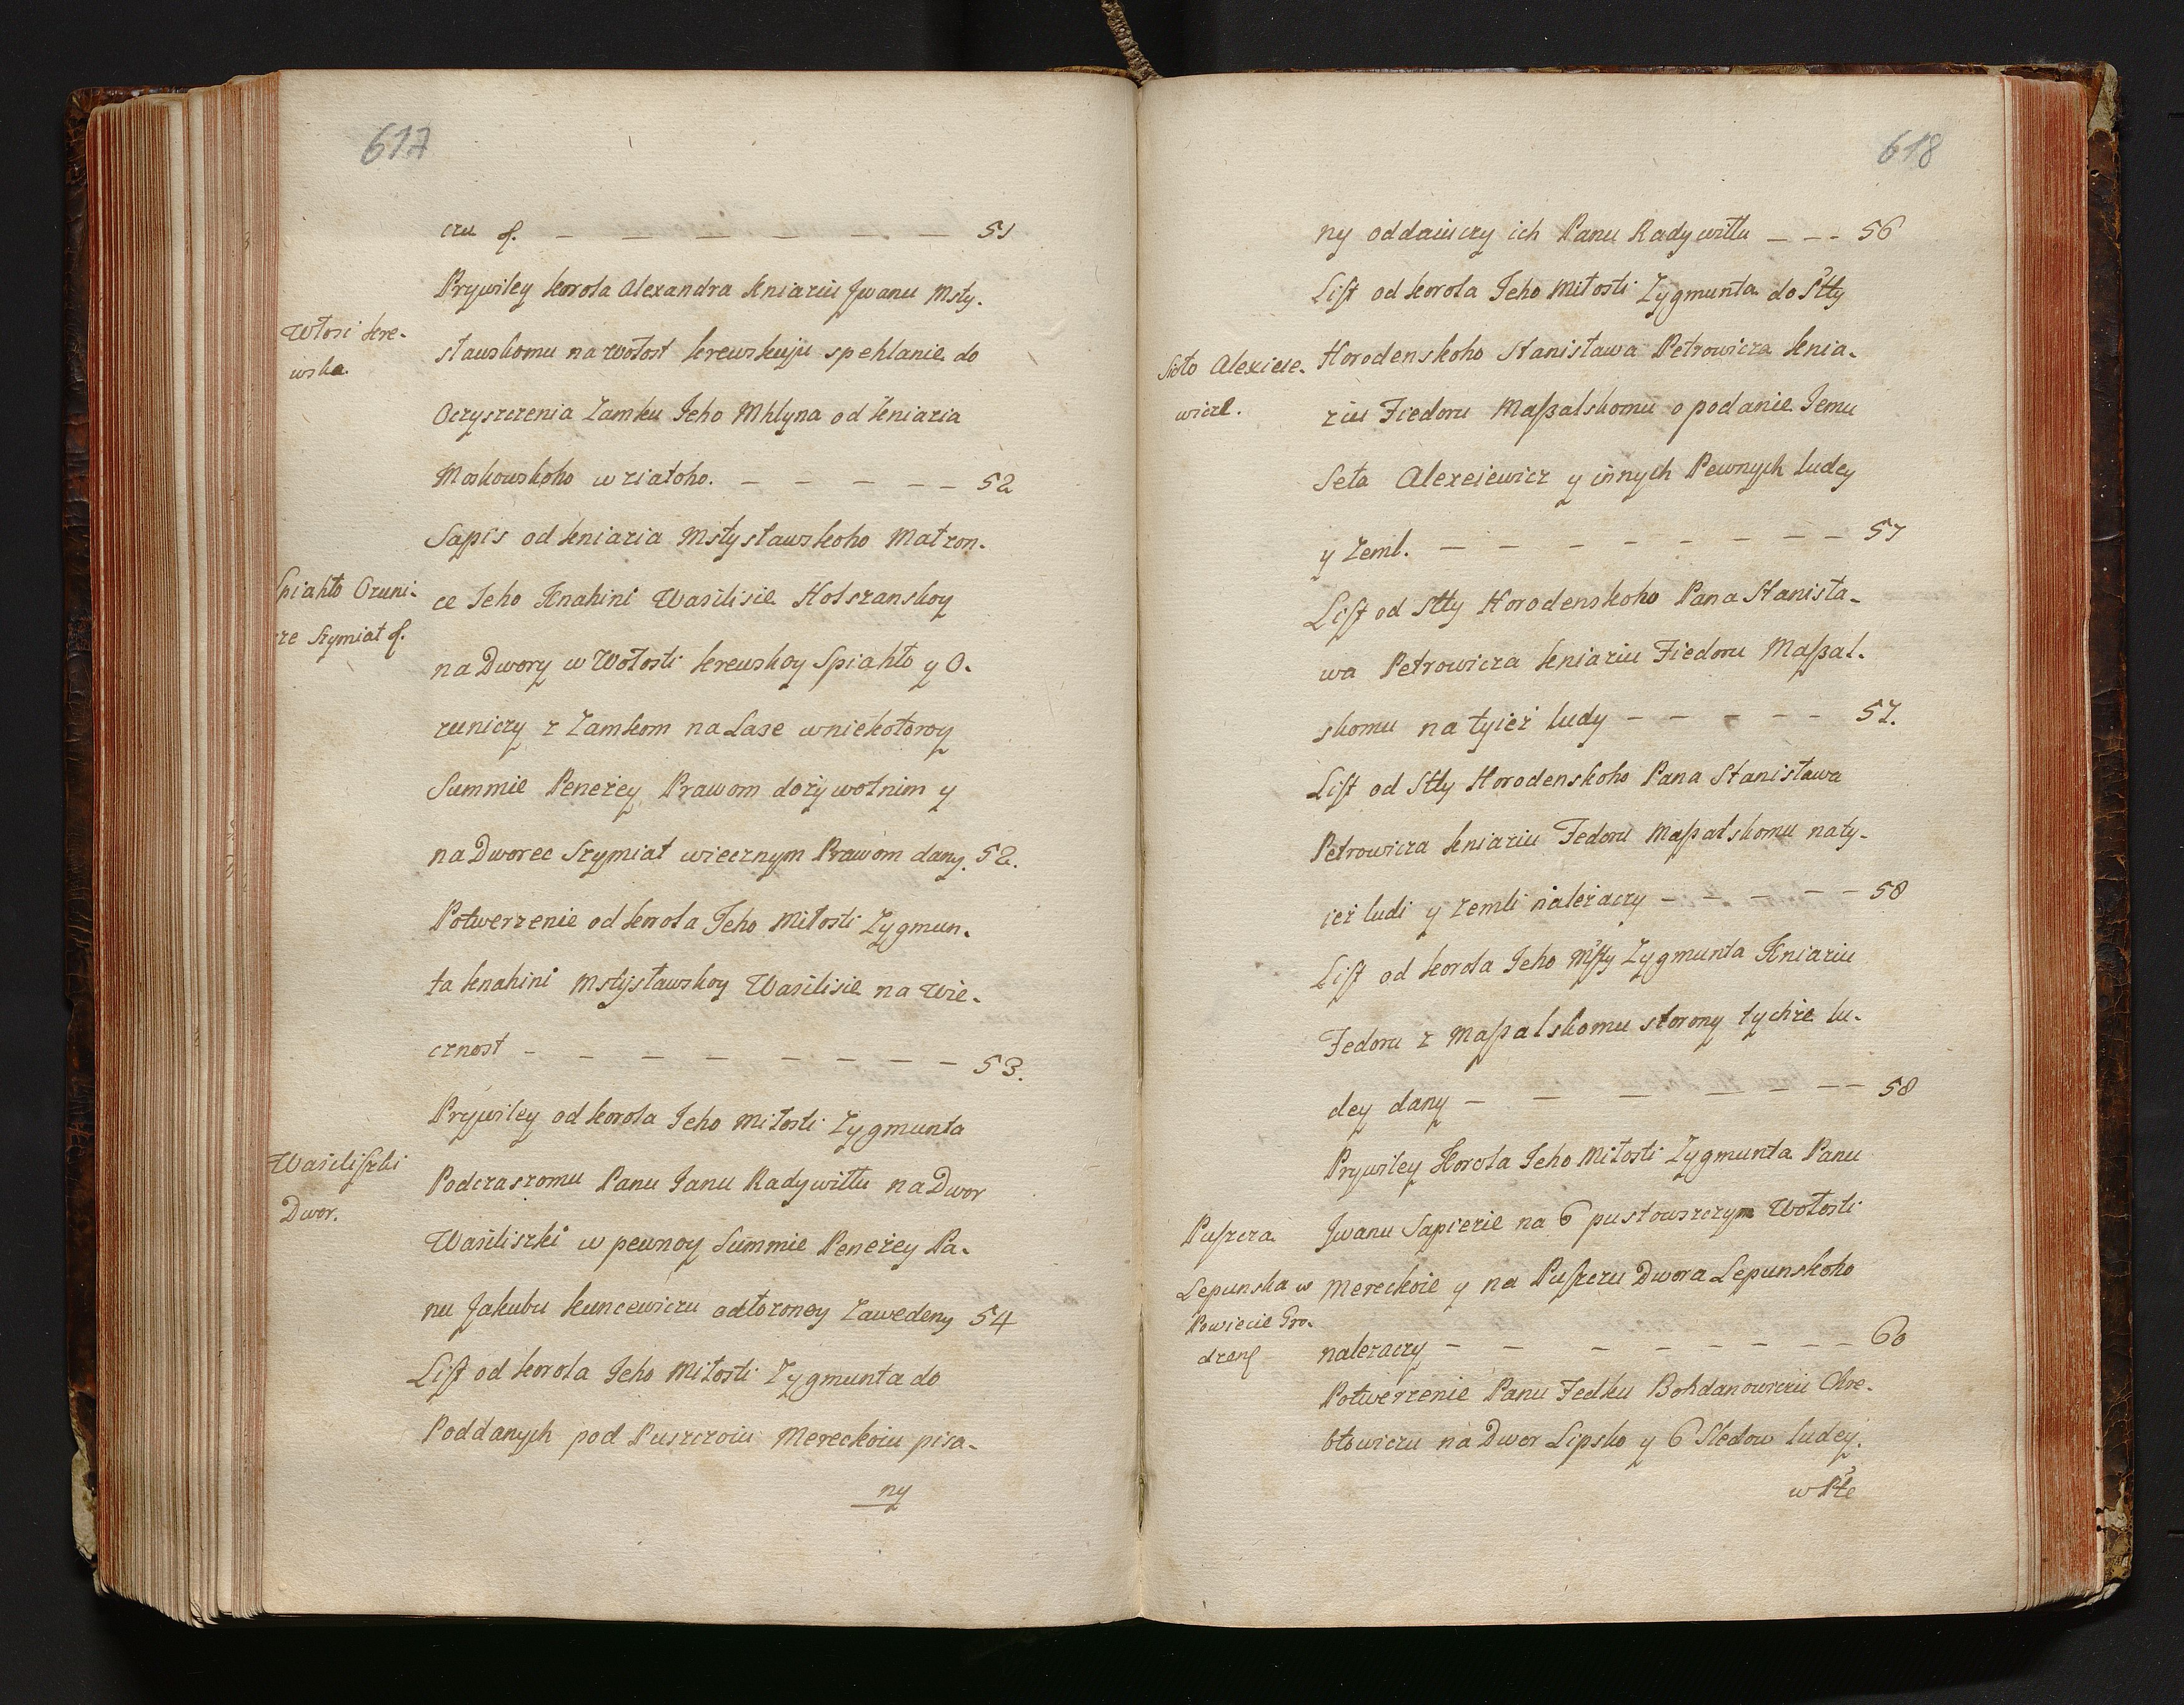 617
cru f. — — — — — — — 51
Prywiley korola Alexandra kniaziu Jwanu Msty-
Włosć kre-
wska.
sławskomu na wołost krewskuju spehlanie do
Oczyszczenia Zamku Jeho Mhlyna od kniazia
Moskowskoho wziatoho. — — — — — 52
Sapis od kniazia Mstysławskoho Małzon-
Spiahło Ozuni-
cze Szymiat f.
ce Jeho Knahini Wasilisie Holszanskoy
na Dwory w Wołosti krewskoy Spiahło y O-
zuniczy z Zamkom na Lase wniekotoroy
Summie Peneżey Prawom dożywotnim y
na Dworec Szymiat wiecznym Prawom dany. 52.
Potwerzenie od korola Jeho Miłosti Zygmun-
ta knahini Mstysławskoy Wasilisie na Wie-
cznost — — — — — — — — 53.
Prywiley od korola Jeho Miłosti Zygmunta
Wasiliszki
Dwor.
Podczaszomu Panu Janu Radywiłłu na Dwor
Wasiliszki w pewnoy Summie Peneżey Pa-
nu Jakubu kuncewiczu odłożoney Zawedeny 54
List od korola Jeho Miłosti Zygmunta do
Poddanych pod Puszczoiu Mereckoiu pisa-
ny
618
ny oddaiuczy ich Panu Radywiłłu — — - 56
List od korola Jeho Miłosti Zygmunta do Stty
Sioło Alexieie-
wicze.
Horodenskoho Stanisława Petrowicza knia-
ziu Fiedoru Massalskomu o podanie Jemu
Seła Alexeiewicz y innych Pewnych ludey
y Zeml. — — — — — — — — 57
List od Stty Horodenskoho Pana Stanisła-
wa Petrowicza kniaziu Fiedoru Massal-
skomu na tyież ludy — — — — — 57.
List od Stty Horodenskoho Pana Stanisława
Petrowicza kniaziu Fedoru Massalskomu na ty-
ież ludi y zemli należaczy — — — — — 58
List od korola Jeho Mstty Zygmunta Kniaziu
Fedoru z Massalskomu storony tychże lu-
dey dany — — — — — — — 58
Prywiley Korola Jeho Miłosti Zygmunta Panu
Puszcza
Lepunska w
Powiecie Gro-
dzenſ
Jwanu Sapiezie na 6 pustowszczyn Wołosti
Mereckoie y na Puszczu Dwora Lepunskoho
nalezaczy — — — — — — — — 60
Potwerzenie Panu Fedku Bohdanowiczu Chre-
btowiczu na Dwor Lipsko y 6 Sledow ludey.
w Płe